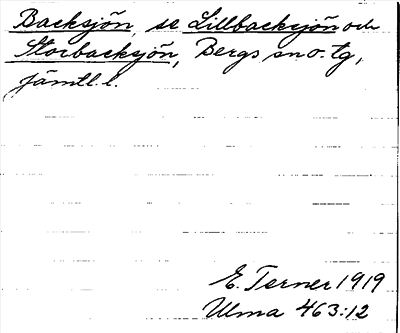 Backsjön, se Lillbacksjön och
Storbacksjön, Bergs sn o. tg,
Jämtl. l.
E. Terner 1919
Ulma 463:12